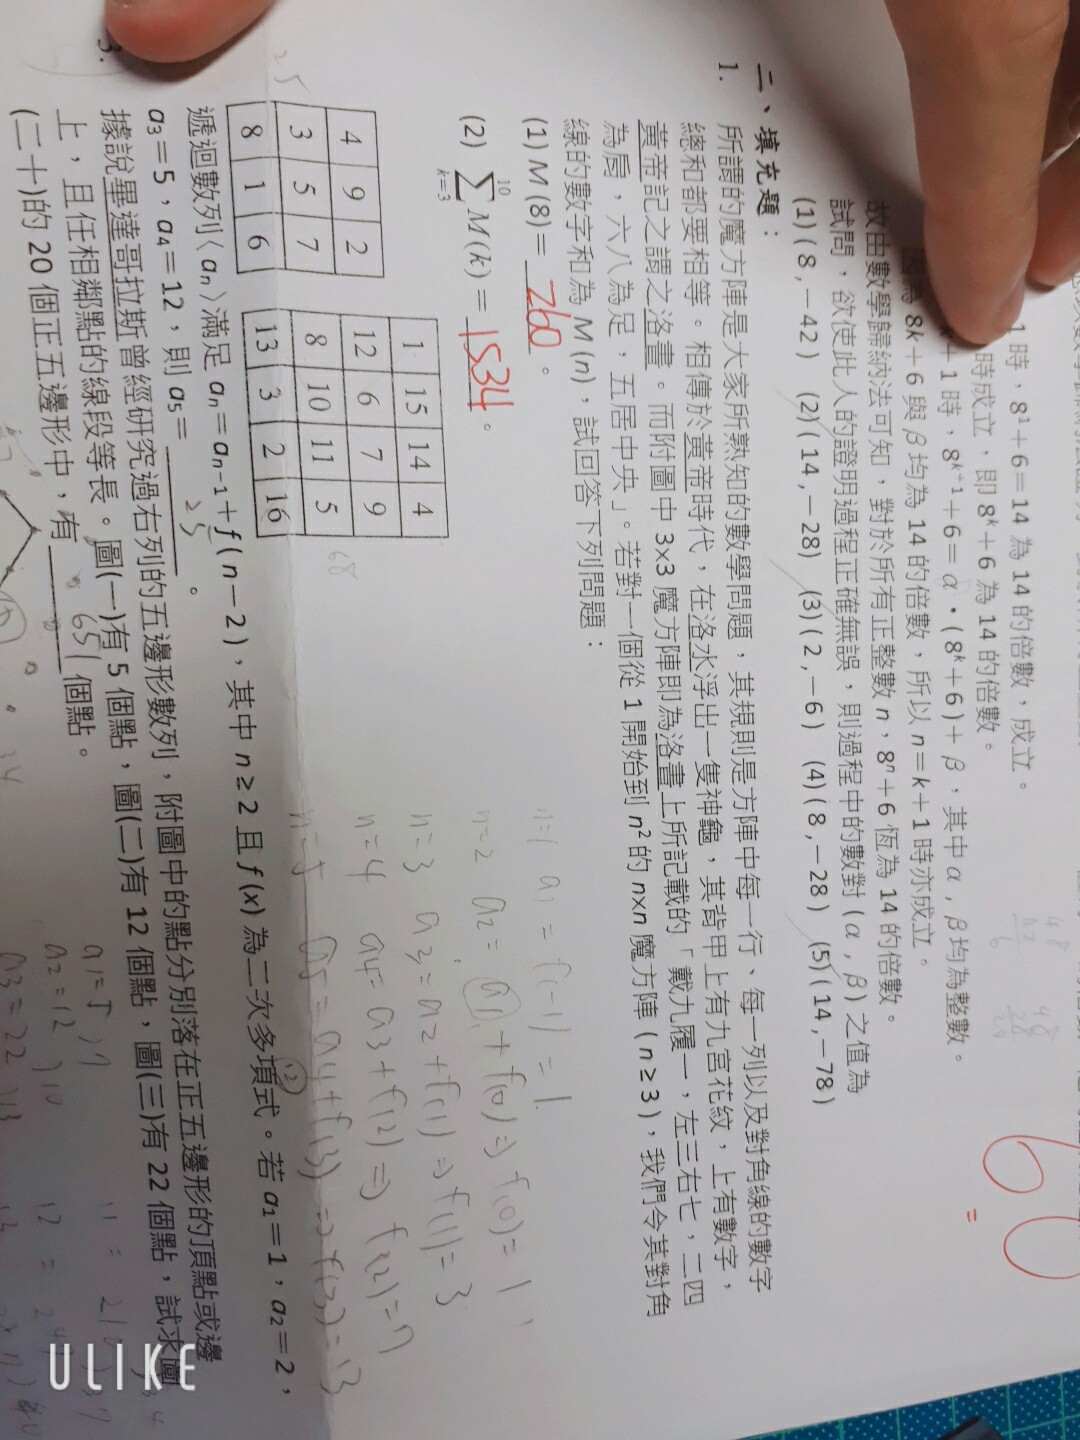 1 時，8¹+6=14 為 14 的倍數，成立。
時成立，即 8ᵏ+6 為 14 的倍數。
k+1 時，8ᵏ⁺¹+6=α・(8ᵏ+6)+β，其中 α，β 均為整數。
因為 8k+6 與 β 均為 14 的倍數，所以 n=k+1 時亦成立。
故由數學歸納法可知，對於所有正整數 n，8ⁿ+6 恆為 14 的倍數。
試問，欲使此人的證明過程正確無誤，則過程中的數對 (α，β) 之值為
(1)(8,-42) (2)(14,-28) (3)(2,-6) (4)(8,-28) (5)(14,-78)
60
二、填充題：
1. 所謂的魔方陣是大家所熟知的數學問題，其規則是方陣中每一行、每一列以及對角線的數字
總和都要相等。相傳於黃帝時代，在洛水浮出一隻神龜，其背甲上有九宮花紋，上有數字，
黃帝記之謂之洛書。而附圖中 3×3 魔方陣即為洛書上所記載的「戴九履一，左三右七，二四
為肩，六八為足，五居中央」。若對一個從 1 開始到 n² 的 n×n 魔方陣 (n≥3)，我們令其對角
線的數字和為 M(n)，試回答下列問題：
(1) M(8)= 260 。
(2) ∑ M(k) = 1534 。
10
k=3
4 9 2
3 5 7
8 1 6
1 15 14 4
12 6 7 9
8 10 11 5
13 3 2 16
68
n=1 a₁=f(-1)=1
n=2 a₂=a₁+f(0)⇒f(0)=1
n=3 a₃=a₂+f(1)⇒f(1)=3
n=4 a₄=a₃+f(2)⇒f(2)=7
n=5 a₅=a₄+f(3)⇒f(3)=13
25
遞迴數列⟨aₙ⟩滿足 aₙ=aₙ₋₁+f(n-2)，其中 n≥2 且 f(x) 為二次多項式。若 a₁=1，a₂=2，
a₃=5，a₄=12，則 a₅= 25 。
3. 據說畢達哥拉斯曾經研究過右列的五邊形數列，附圖中的點分別落在正五邊形的頂點或邊
上，且任相鄰點的線段等長。圖(一)有 5 個點，圖(二)有 12 個點，圖(三)有 22 個點，試求圖
(二十)的 20 個正五邊形中，有 651 個點。
a₁=5 〉7
a₂=12 〉10
a₃=22 〉13
ULIKE